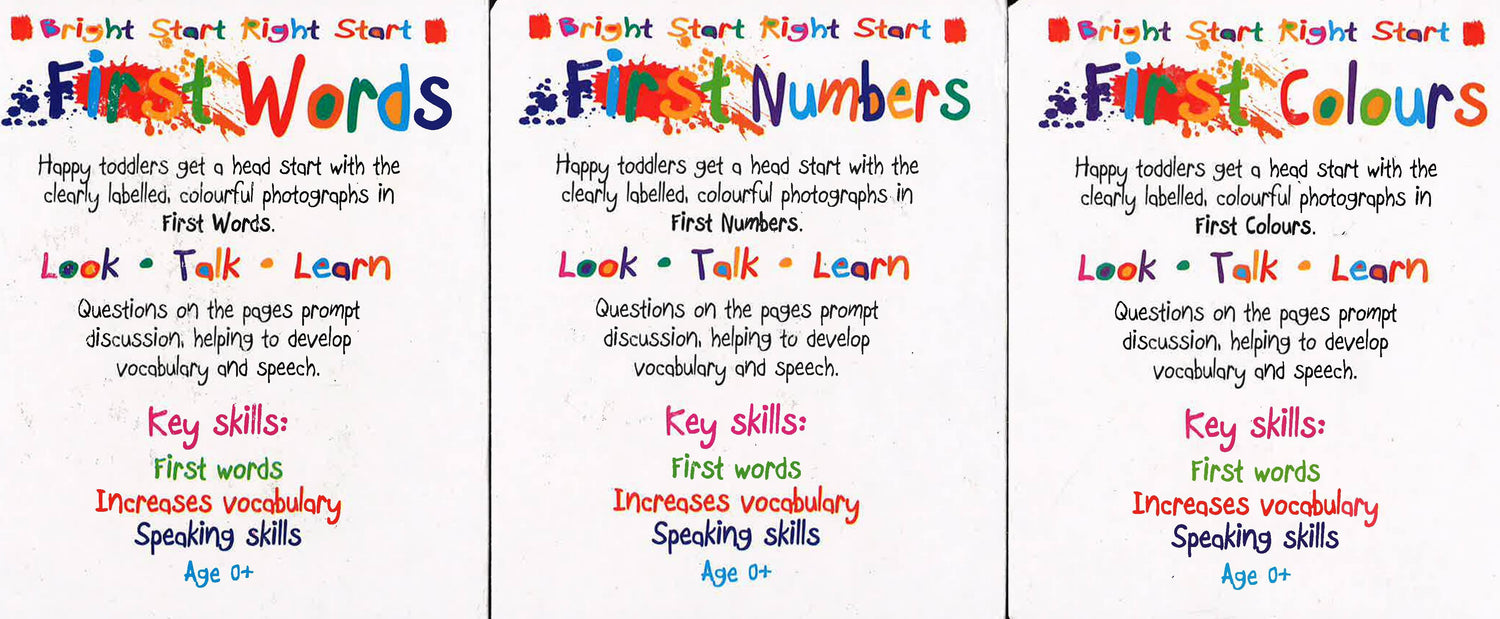 Bright Start Right Start
First Words
Happy toddlers get a head start with the
clearly labelled, colourful photographs in
First Words.
Look • Talk • Learn
Questions on the pages prompt
discussion, helping to develop
vocabulary and speech.
Key skills:
First words
Increases vocabulary
Speaking skills
Age 0+
Bright Start Right Start
First Numbers
Happy toddlers get a head start with the
clearly labelled, colourful photographs in
First Numbers.
Look • Talk • Learn
Questions on the pages prompt
discussion, helping to develop
vocabulary and speech.
Key skills:
First words
Increases vocabulary
Speaking skills
Age 0+
Bright Start Right Start
First Colours
Happy toddlers get a head start with the
clearly labelled, colourful photographs in
First Colours.
Look • Talk • Learn
Questions on the pages prompt
discussion, helping to develop
vocabulary and speech.
Key skills:
First words
Increases vocabulary
Speaking skills
Age 0+